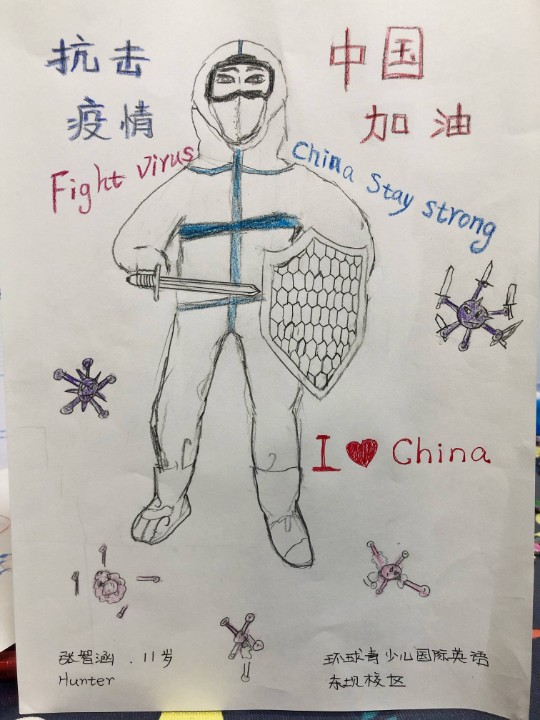 抗击
疫情
Fight Virus
中国
加油
China Stay strong
I ❤ China
张智涵 . 11岁
Hunter
环球青少儿国际英语
东坝校区